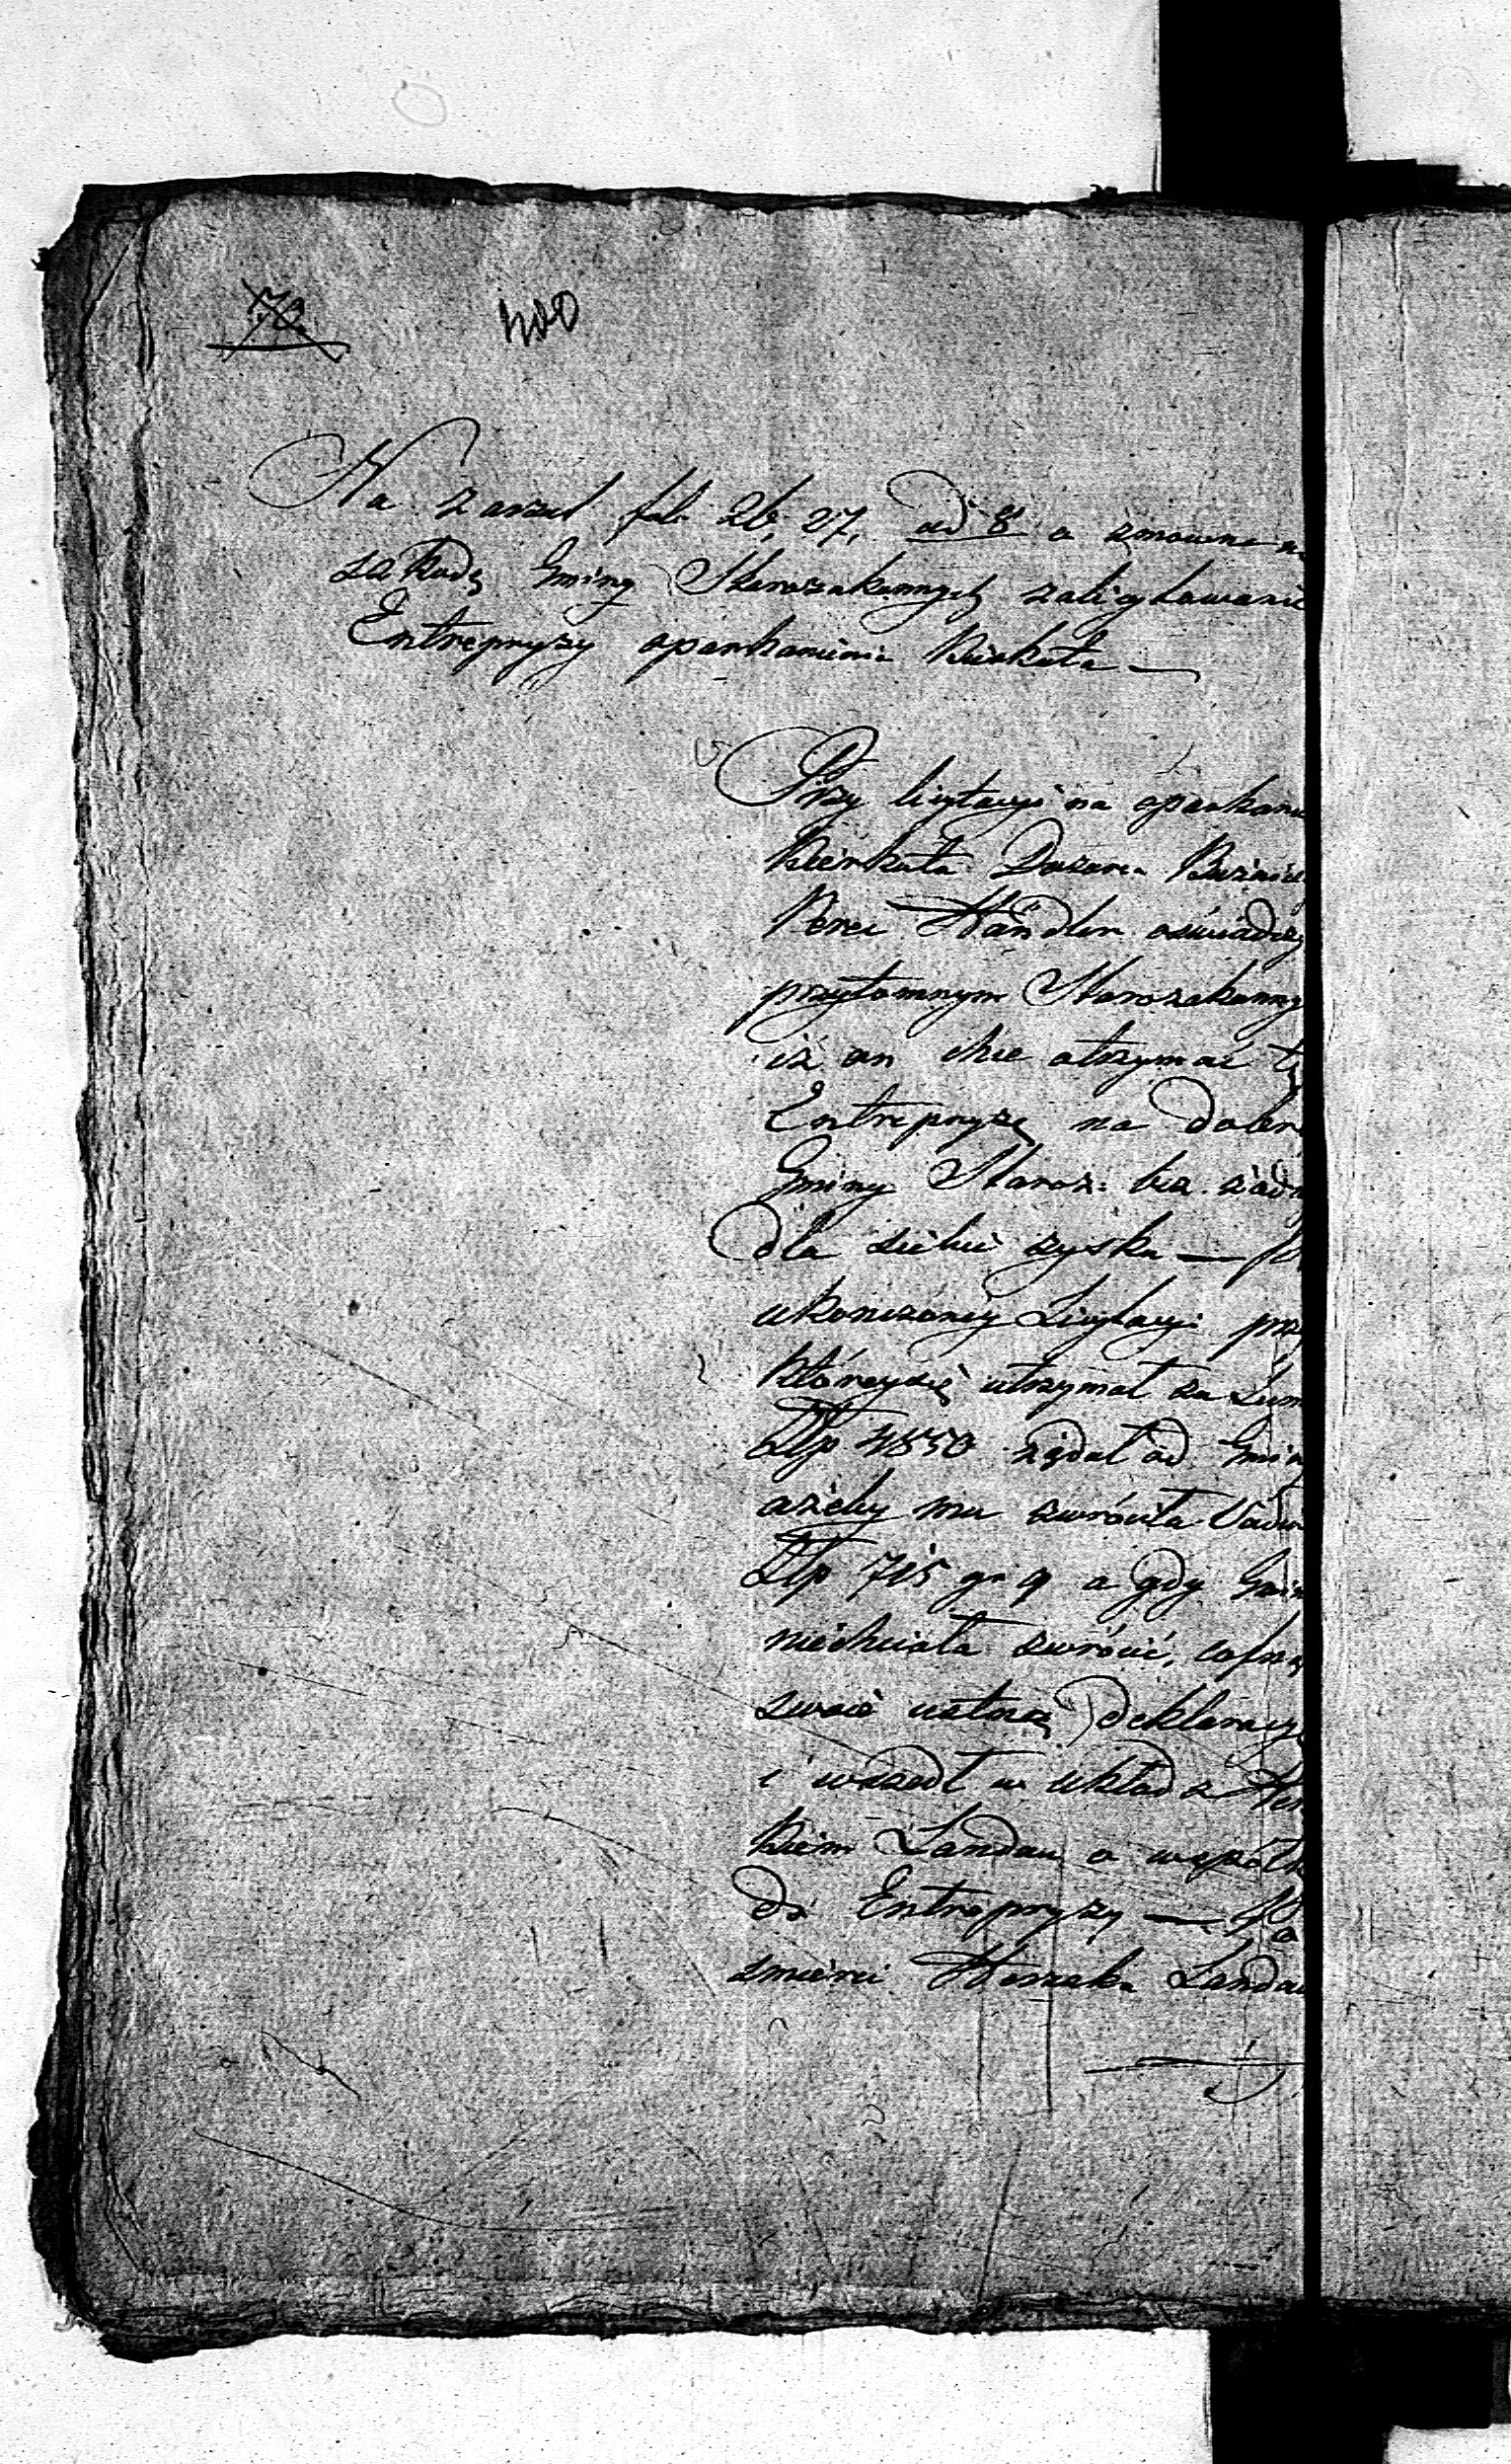 70. 400
Na zarzut fol: 26, 27, ad 8 o zmowne n
szkodę Gminy Starozakonnych zalicytowanie
Entrepryzy oparkanienia Kierkuta —
Przy licytacyi na oparkani
Kierkuta Dozorca Bużnicz
Perec Händler oświadczy
przytomnym Starozakonny
iż on chce otrzymać tę
Entrepryzę na dobro
Gminy Staroz: bez żadn
dla siebie zysku — Po
ukończoney Licytacyi prz
któreysię utrzymał za Sum
Złp 4850 żądał od Gminy
ażeby mu zwróciła Vadiu
Złp 715 gr 9 a gdy Gmin
niechciała zwrócić, cofnął
swoie ustną Deklaracyę
i wszedł w układ z Her
kiem Landau o wspólk
do Entrepryzy — Po
śmierci Herszka Landau